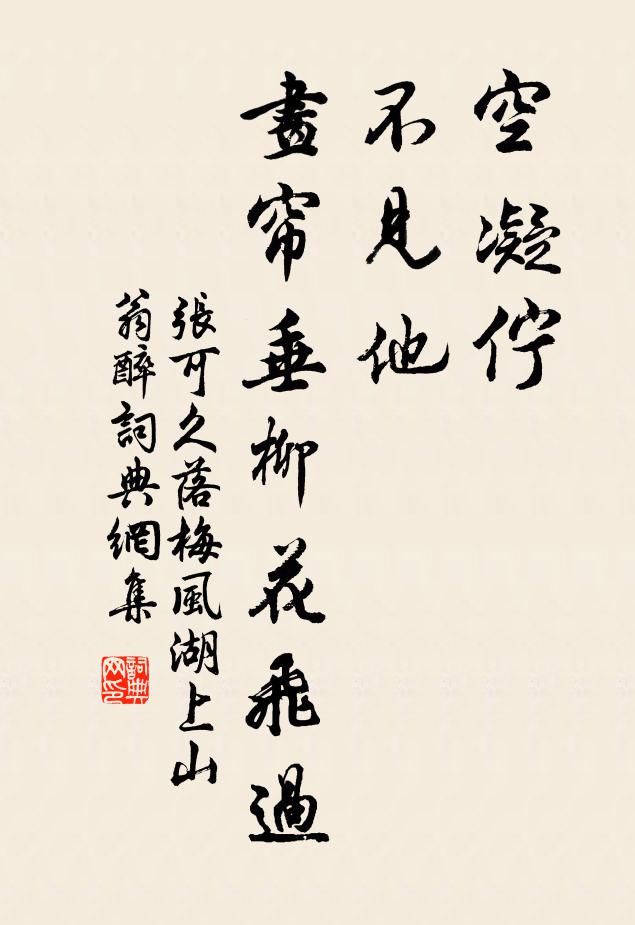 空凝佇
不見他
畫帘垂柳花飛過
張可久落梅風湖上山
翁醉詞典網集
詞典网印